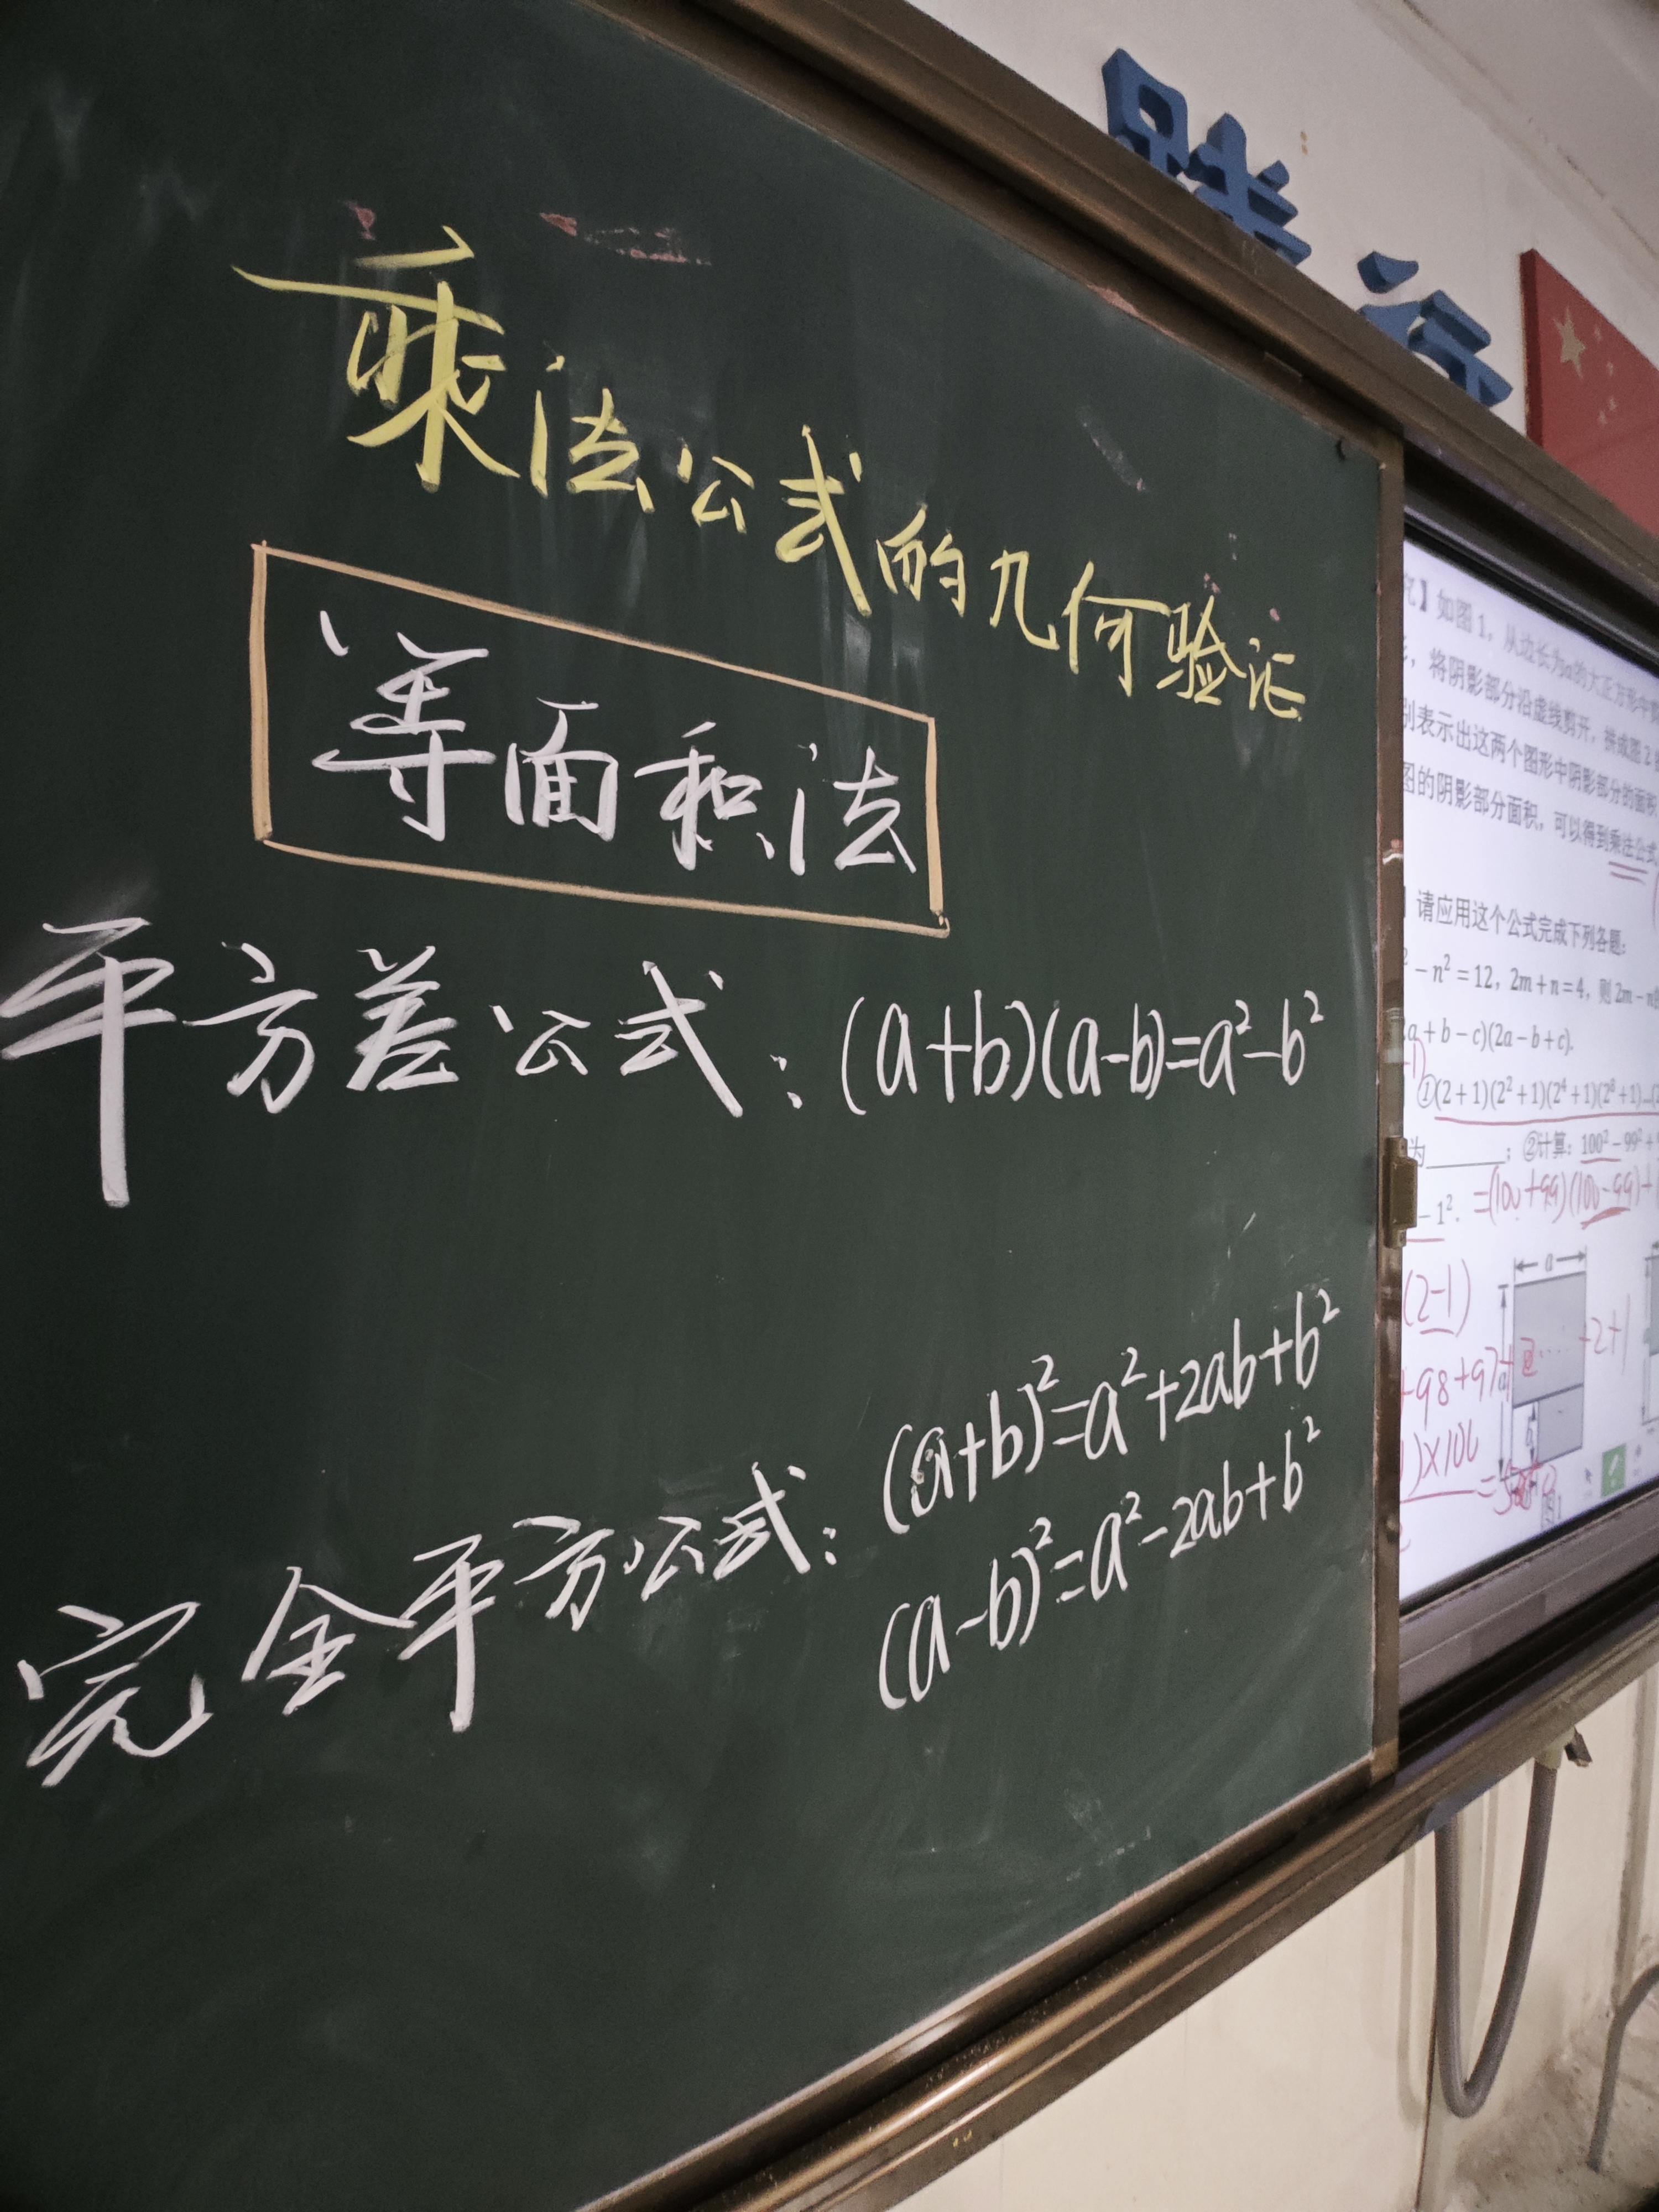 践行
乘法公式的几何验证
等面积法
平方差公式：(a+b)(a-b)=a²-b²
完全平方公式：(a+b)²=a²+2ab+b²
(a-b)²=a²-2ab+b²
究】如图1，从边长为a的大正方形中剪
，将阴影部分沿虚线剪开，拼成图2
别表示出这两个图形中阴影部分的面积
图的阴影部分面积，可以得到乘法公式
请应用这个公式完成下列各题：
² - n² = 12，2m + n = 4，则 2m - n
a + b - c)(2a - b + c).
-1)
①(2 + 1)(2² + 1)(2⁴ + 1)(2⁸ + 1)…(2
为______；②计算：100² - 99² +
- 1².
=(100+99)(100-99)+
(2-1)
a
+98+97+ -2+1
a
b
)×100
图1